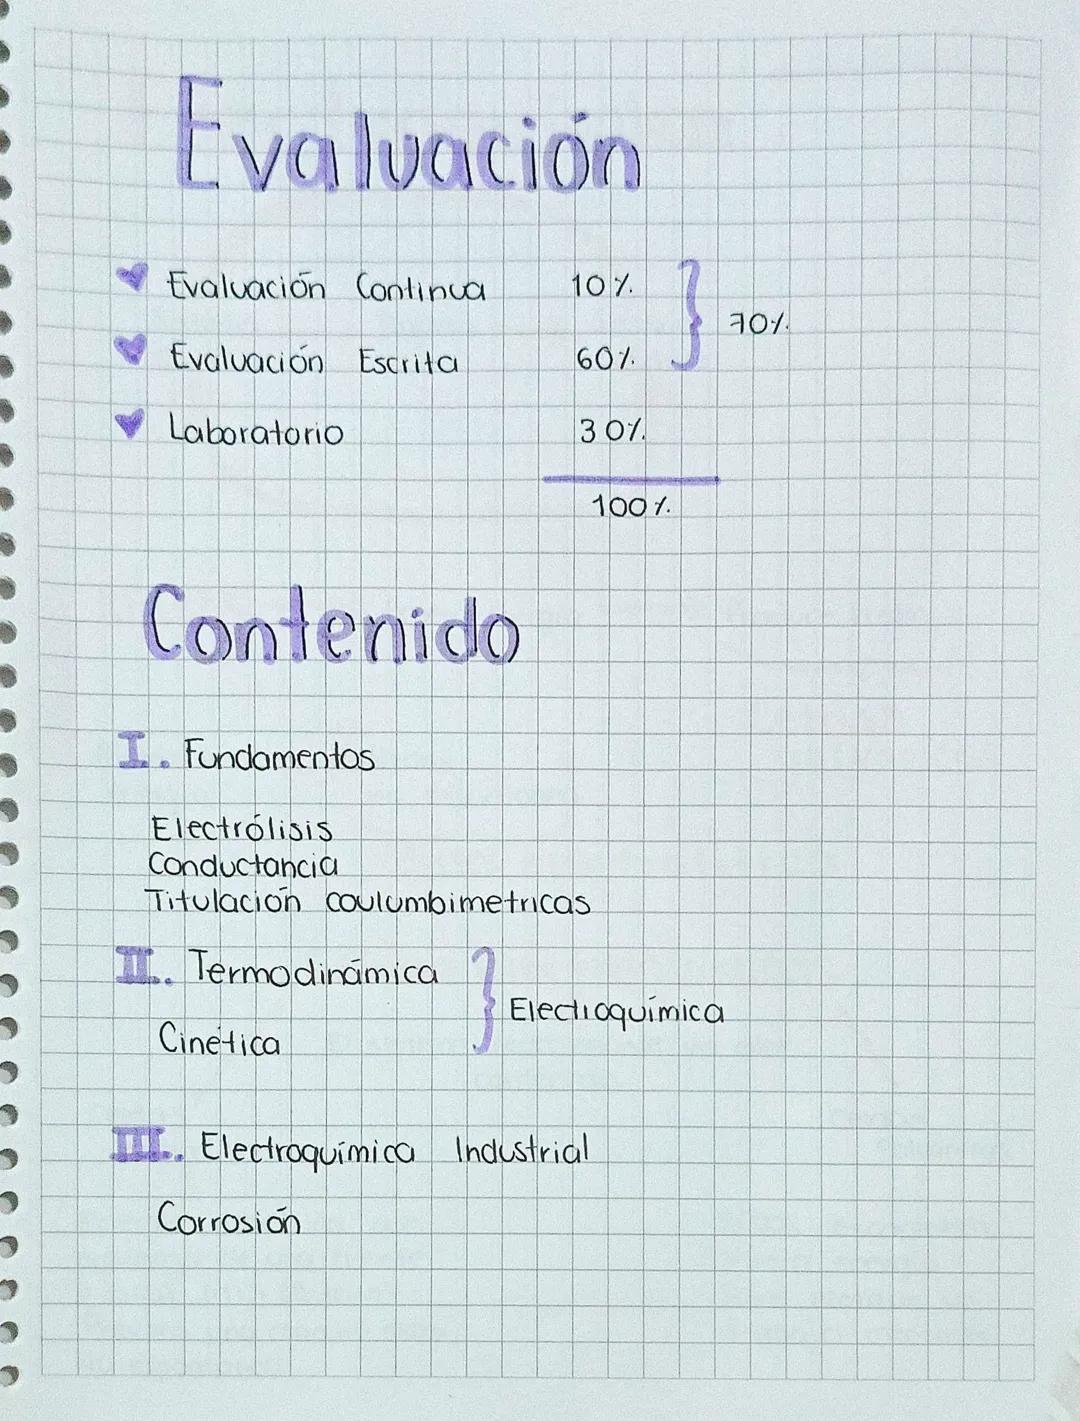 Evaluación
Evaluación Continua 10%
70%
Evaluación Escrita 60%
Laboratorio 30%
100%
Contenido
I. Fundamentos
Electrólisis
Conductancia
Titulación coulumbimetricas
II. Termodinámica
Electroquímica
Cinética
III. Electroquímica Industrial
Corrosión